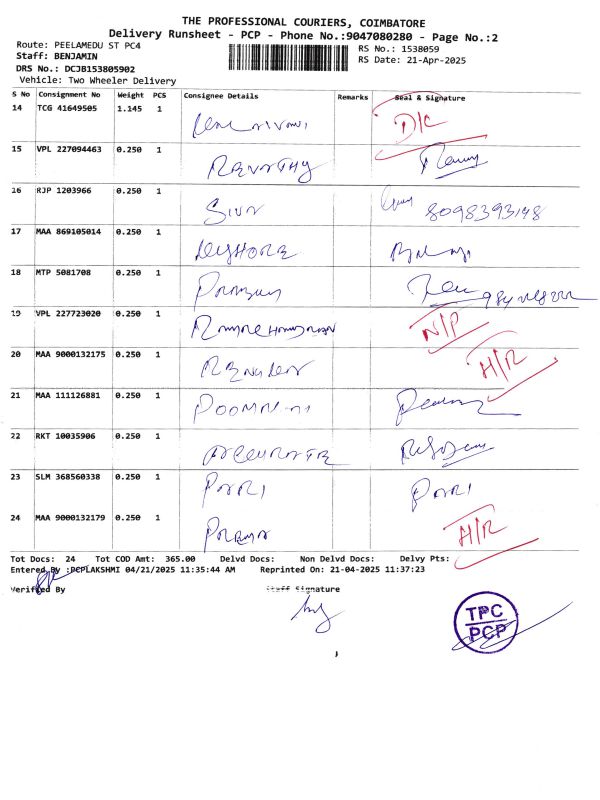 THE PROFESSIONAL COURIERS, COIMBATORE
Delivery Runsheet - PCP - Phone No.:9047080280 - Page No.:2
Route: PEELAMEDU ST PC4
RS No.: 1538059
Staff: BENJAMIN
RS Date: 21-Apr-2025
DRS No.: DCJB153805902
Vehicle: Two Wheeler Delivery
S No Consignment No Weight PCS Consignee Details Remarks Seal & Signature
14 TCG 41649505 1.145 1 D/C
15 VPL 227094463 0.250 1 REVATHY
16 RJP 1203966 0.250 1 SIVA 8098393148
17 MAA 869105014 0.250 1 KISHORE
18 MTP 5081708 0.250 1
19 VPL 227723020 0.250 1 N/P
20 MAA 9000132175 0.250 1 H/R
21 MAA 111126881 0.250 1
22 RKT 10035906 0.250 1
23 SLM 368560338 0.250 1 PARRI PARRI
24 MAA 9000132179 0.250 1 H/R
Tot Docs: 24 Tot COD Amt: 365.00 Delvd Docs: Non Delvd Docs: Delvy Pts:
Entered By :PCPLAKSHMI 04/21/2025 11:35:44 AM Reprinted On: 21-04-2025 11:37:23
Verified By Staff Signature
TPC
PCP